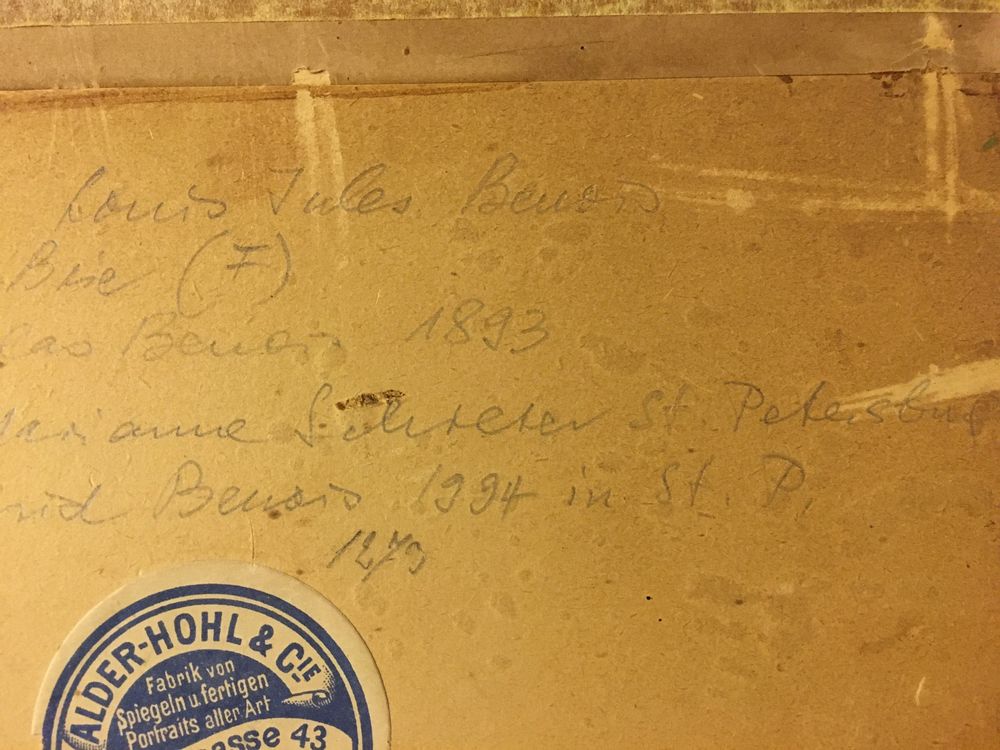 Louis Jules Benois
Brie (F)
Benois 1893
Schreter St. Petersbug
Benois 1994 in St. P.
1279
ALDER-HOHL & CIE
Fabrik von
Spiegeln u. fertigen
Portraits aller Art
asse 43